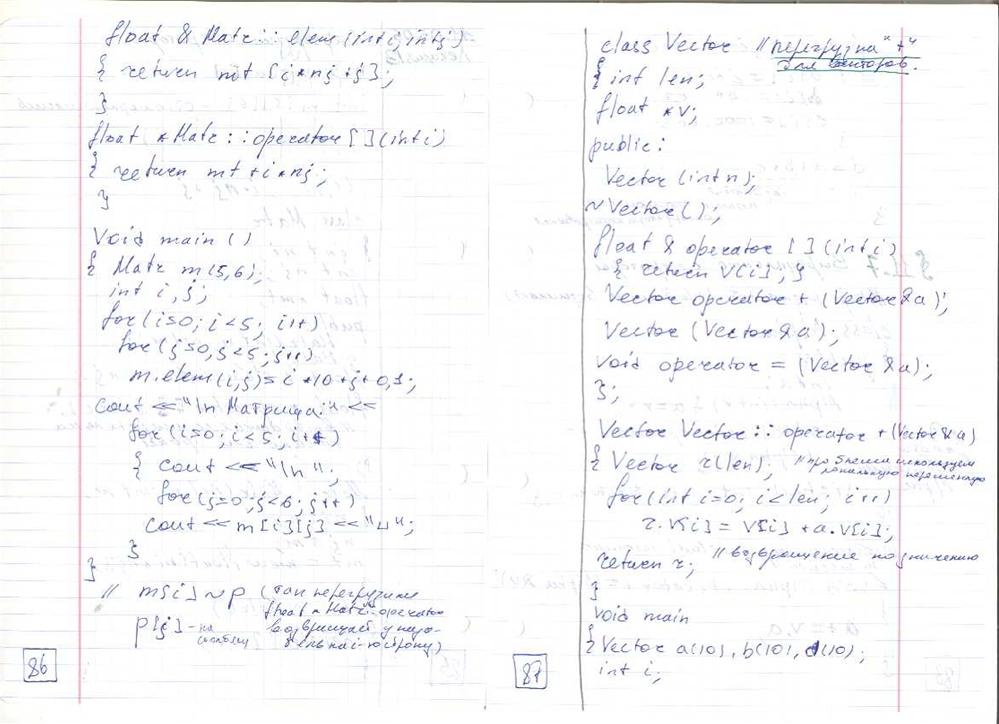 float & Matr::elem(int i, int j)
{ return mt [i*nj+j];
}
float *Matr::operator[](int i)
{ return mt+i*nj;
}
Void main ()
{ Matr m(5,6);
int i, j;
for(i=0; i<5; i++)
for(j=0, j<5; j++)
m.elem(i,j)=i*10+j+0,1;
cout <<"\n Матрица:" <<
for(i=0; i<5; i++)
{ cout <<"\n";
for(j=0; j<6; j++)
cout << m[i][j] <<"␣";
}
}
// m[i] ~ p (так перегрузили
float * Matr::operator
p[j] - на возвращает указа-
тель на i-ю строку)
86
class Vector // перегрузка "+"
для векторов.
{ int len;
float *v;
public:
Vector (int n);
~Vector();
float & operator [](int i)
{ return V[i]; }
Vector operator + (Vector &a);
Vector (Vector &a);
void operator = (Vector &a);
};
Vector Vector:: operator +(Vector &a)
{ Vector r(len); // используем
локальную переменную
for(int i=0; i<len; i++)
r.V[i] = V[i] +a.V[i];
return r; // возвращение по значению
}
void main
{ Vector a(10), b(10), d(10);
int i;
87